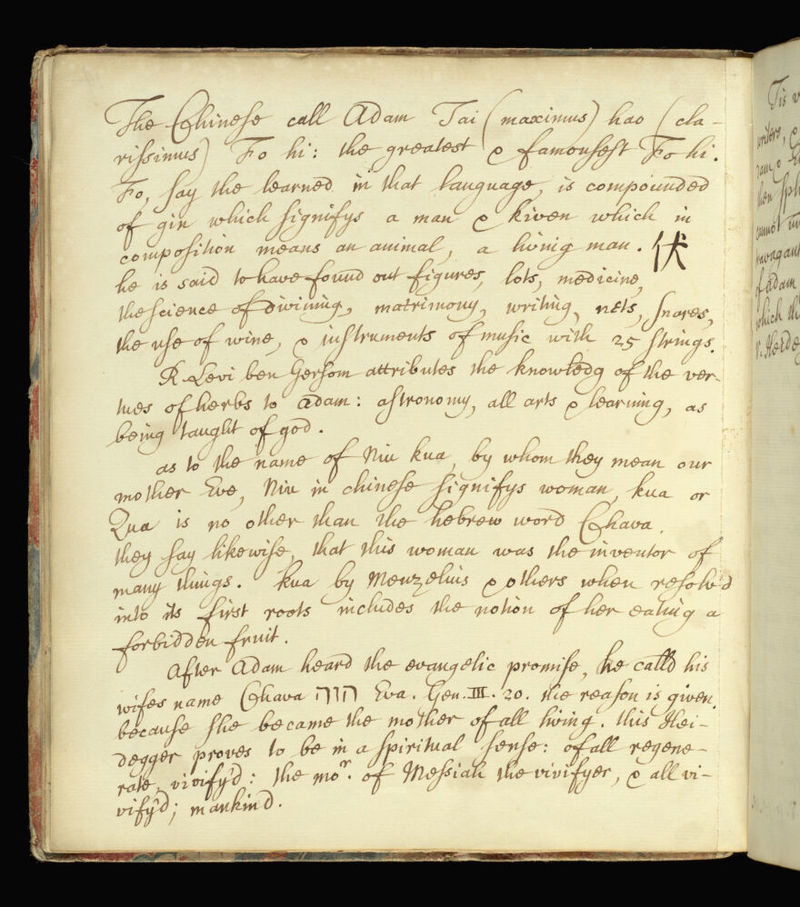 The Chinese call Adam Tai (maximus) hao (cla-
rissimus) Fo hi: the greatest & famousest Fo hi.
Fo, say the learned in that language, is compounded
of gin which signifys a man & kiven which in
composition means an animal, a living man. 伏
he is said to have found out figures, lots, medicine,
the science of divining, matrimony, writing, nets, snares,
the use of wine, & instruments of music with 25 strings.
R. Levi ben Gersom attributes the knowledg of the ver-
tues of herbs to Adam: astronomy, all arts & learning, as
being taught of god.
as to the name of Niu kua, by whom they mean our
mother Eve, Niu in chinese signifys woman, kua or
Qua is no other than the hebrew word Chava.
they say likewise, that this woman was the inventor of
many things. kua by Menzelius & others when resolv'd
into its first roots includes the notion of her eating a
forbidden fruit.
After Adam heard the evangelic promise, he calld his
wifes name Chava הוה Eva. Gen. III. 20. the reason is given,
because she became the mother of all living. this Hei-
degger proves to be in a spiritual sense: of all regene-
rate, vivify'd: the mor. of Messiah the vivifyer, & all vi-
vify'd; mankind.
Tis